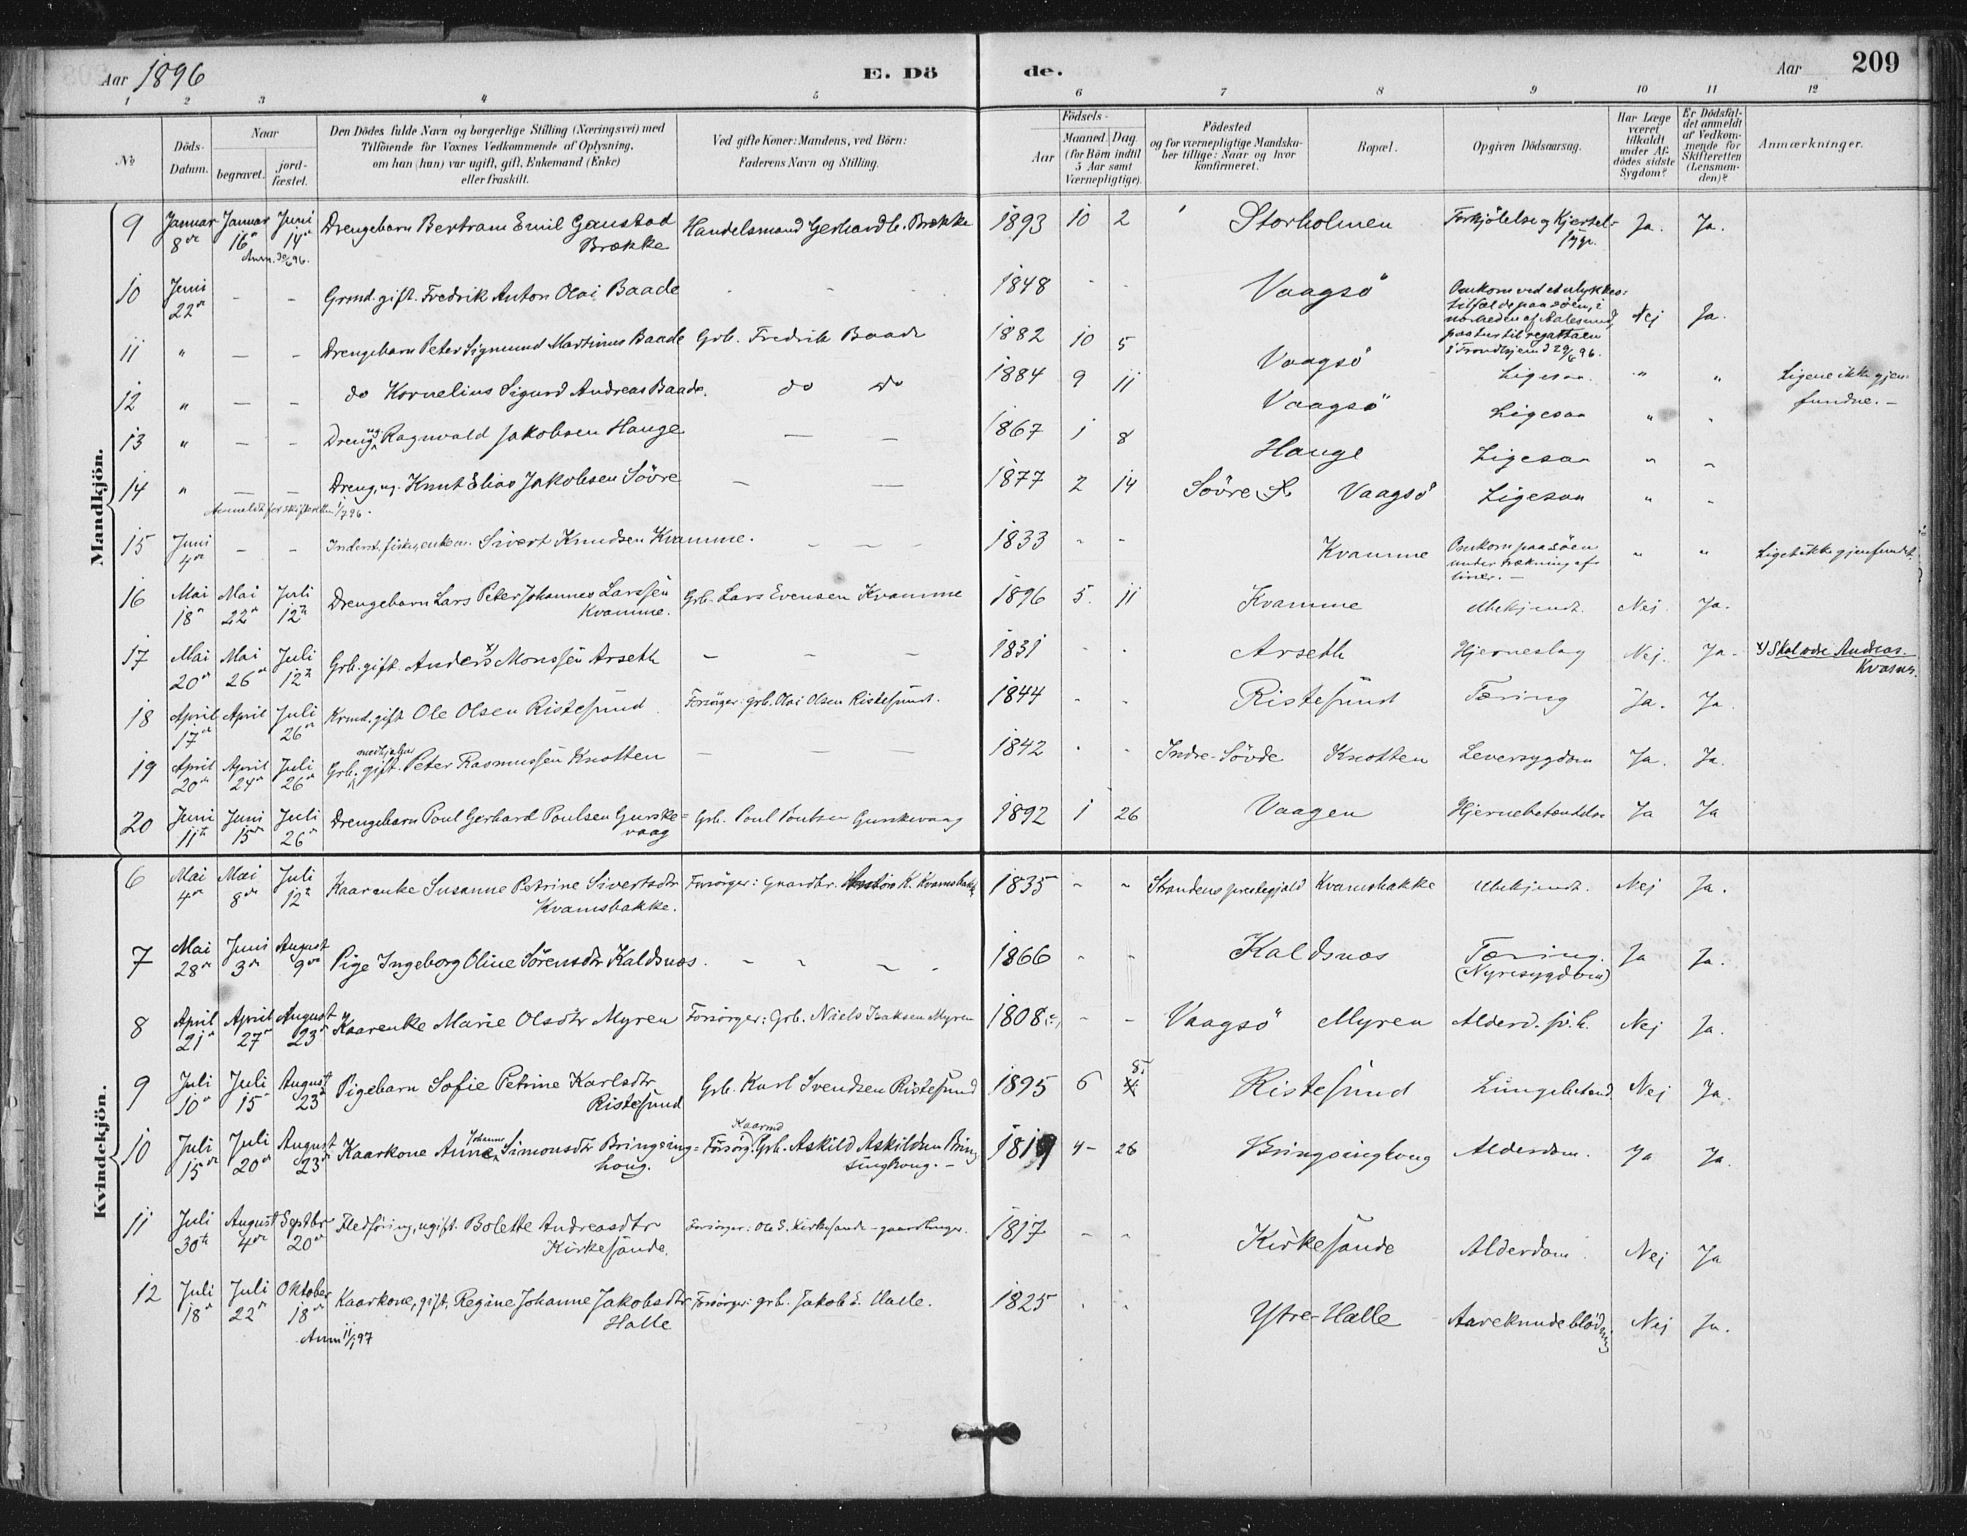 Aar 1896
E. Dö
de.
Aar
209
1 2 3 4 5 6 7 8 9 10 11 12
No
Döds-
Datum.
Naar
begravet.
jord-
fæstet.
Den Dödes fulde Navn og borgerlige Stilling (Næringsvei) med
Tilföiende for Voxnes Vedkommende af Oplysning,
om han (hun) var ugift, gift, Enkemand (Enke)
eller fraskilt.
Ved gifte Koner: Mandens, ved Börn:
Faderens Navn og Stilling.
Födsels-
Aar
Maaned
Dag
(for Börn indtil
5 Aar samt
Værnepligtige).
Födested
og for værnepligtige Mandska-
ber tillige: Naar og hvor
konfirmeret.
Bopæl.
Opgiven Dödsaarsag.
Har Læge
været
tilkaldt
under Af-
dödes sidste
Sygdom?
Er Dödsfal-
det anmeldt
af Vedkom-
mende for
Skifteretten
(Lensman-
den)?
Anmærkninger.
Mandkjön.
9 Januar 8de Januar 16de Juni 14de Drengebarn Bertram Emil Gaustad Handelsmand Gerhard C. Brække 1893 10 2 Storholmen Forkjölelse og Kjertel- Ja. Ja.
Brække
Anm. 30/6 96.
10 Juni 22de – – Grmd. gift. Fredrik Anton Olai Baade 1848 Vaagsö Omkom ved et ulykkes- Nej Ja.
tilfælde paa söen, i
nærheden af Aalesund,
paa tur til regattaen
i Trondhjem d 29/6 96.
11 " – – Drengebarn Peter Sigmund Martinus Baade Grb. Fredrik Baade 1882 10 5 Vaagsö Ligesaa " "
12 " – – do Kornelius Sigurd Andreas Baade. do do 1884 9 11 Vaagsö Ligesaa " "
Ligene ikke gjen-
fundne. –
13 " – – Dreng ug Ragnvald Jakobsen Hauge – – 1867 1 8 Hauge Ligesaa " "
14 " – – Dreng, ug. Knut Elias Jakobsen Sövre – – 1877 2 14 Sövre Vaagsö Ligesaa " "
Anmeldt for skifteretten 1/7 96.
15 Juni 4de – – Inderst, fisker, enkem. Sivert Knudsen Kvamme. 1833 Kvamme Omkom paa söen " " Liget ikke gjenfundet.
under trækning af
liner. –
16 Mai 18de Mai 22de Juli 12te Drengebarn Lars Peter Johannes Larssen Grb. Lars Evensen Kvamme 1896 5. 11 Kvamme Ubekjendt. Nei. Ja.
Kvamme.
17 Mai 20de Mai 26de Juli 12te Grb. gift. Anders x) Monssen Arseth – – – 1831 Arseth Hjerneslag Nej. Ja. x) Skal være Andreas.
18 April 17de April Juli 26de Krmd. gift Ole Olsen Ristesund Forsörger: grb. Olai Olsen Ristesund. 1844 Ristesund Tæring Ja. Ja.
19 April 20de April 24de Juli 26de Grb. medhjelper gift. Peter Rasmussen Knotten – – – 1842 Indre-Sövde Knotten Leversygdom Ja. Ja.
20 Juni 11te Juni 15de Juli 26de Drengebarn Poul Gerhard Poulsen Gurske- Grb. Poul Poulsen Gurskevaag 1892 1 26 Vaagen Hjernebetændelse Ja Ja
vaag
Kvindekjön.
6 Mai 4de Mai 8de Juli 12te Kaarenke Susanne Petrine Sivertsdtr Forsörger: Gaardbr. K. Kvamsbakk 1835 Strandens prestegjeld Kvamsbakke Ubekjendt. Nej Ja.
Kvamsbakke.
7 Mai 28de Juni 3de August 9de Pige Ingeborg Oline Sörensdtr Kaldsnæs. 1866 Kaldsnæs Tæring. Ja Ja.
(Nyresygdom)
8 April 21de April 27de August 23de Kaarenke Marie Olsdtr Myren Forsörger: Grb. Niels Isaksen Myren 1808 Vaagsö Myren Alderd. sv. h. Nej Ja.
9 Juli 10de Juli 15de August 23de Pigebarn Sofie Petrine Karlsdtr Grb. Karl Svendsen Ristesund 1895 6 8. Ristesund Lungebetænd. Nej Ja.
Ristesund
10 Juli 15de Juli 20de August 23de Kaarkone Anne Johanne Simonsdtr Bringsing- Forsörg. Kaarmd Grb. Askild Askildsen Bring 1819 4 – 26 Bringsinghoug Alderdom. Ja Ja.
houg. singhoug. –
11 Juli 30te August 4de Septbr 20de Fledföring, ugift. Bolette Andreasdtr Forsörger: Ole S. Kirkesande – gaardbruger. 1817 Kirkesande Alderdom. Nej Ja
Kirkesande.
12 Juli 18de Juli 22de Oktober 18de Kaarkone, gift. Regine Johanne Jakobsdtr Forsörger: grb. Jakob E. Halle. 1825 Ytre-Halle Aareknudeblödning Nej Ja.
Halle
Anm 11/1 97